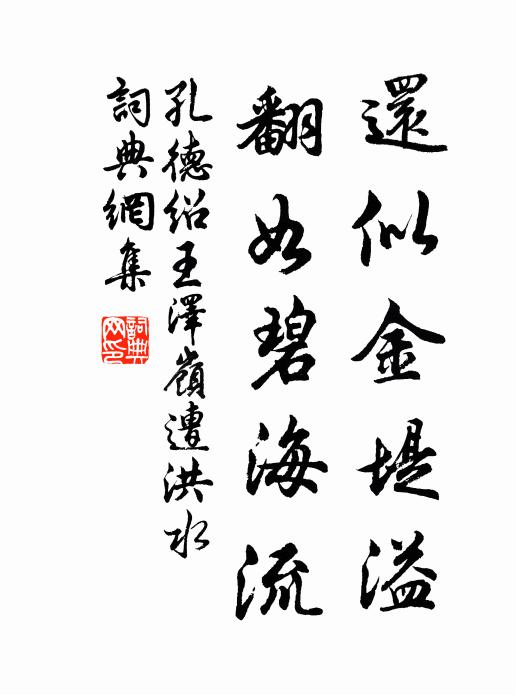 還似金堤溢
翻如碧海流
孔德绍王澤嶺遭洪水
詞典網集
詞典
网印